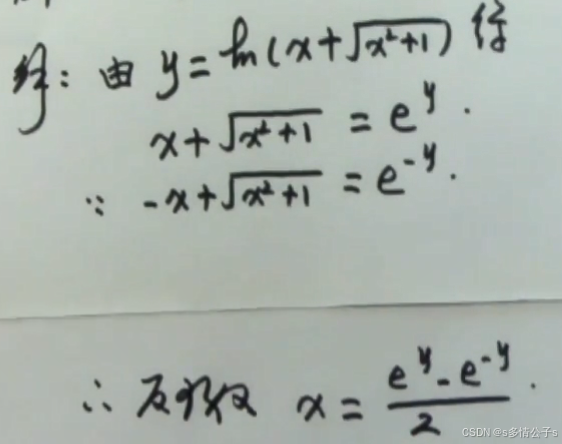 解: 由 y = ln(x+√(x²+1)) 得
x+√(x²+1) = e^y.
∵ -x+√(x²+1) = e^-y.
∴ 反函数 x = (e^y - e^-y)/2.
CSDN @s多情公子s